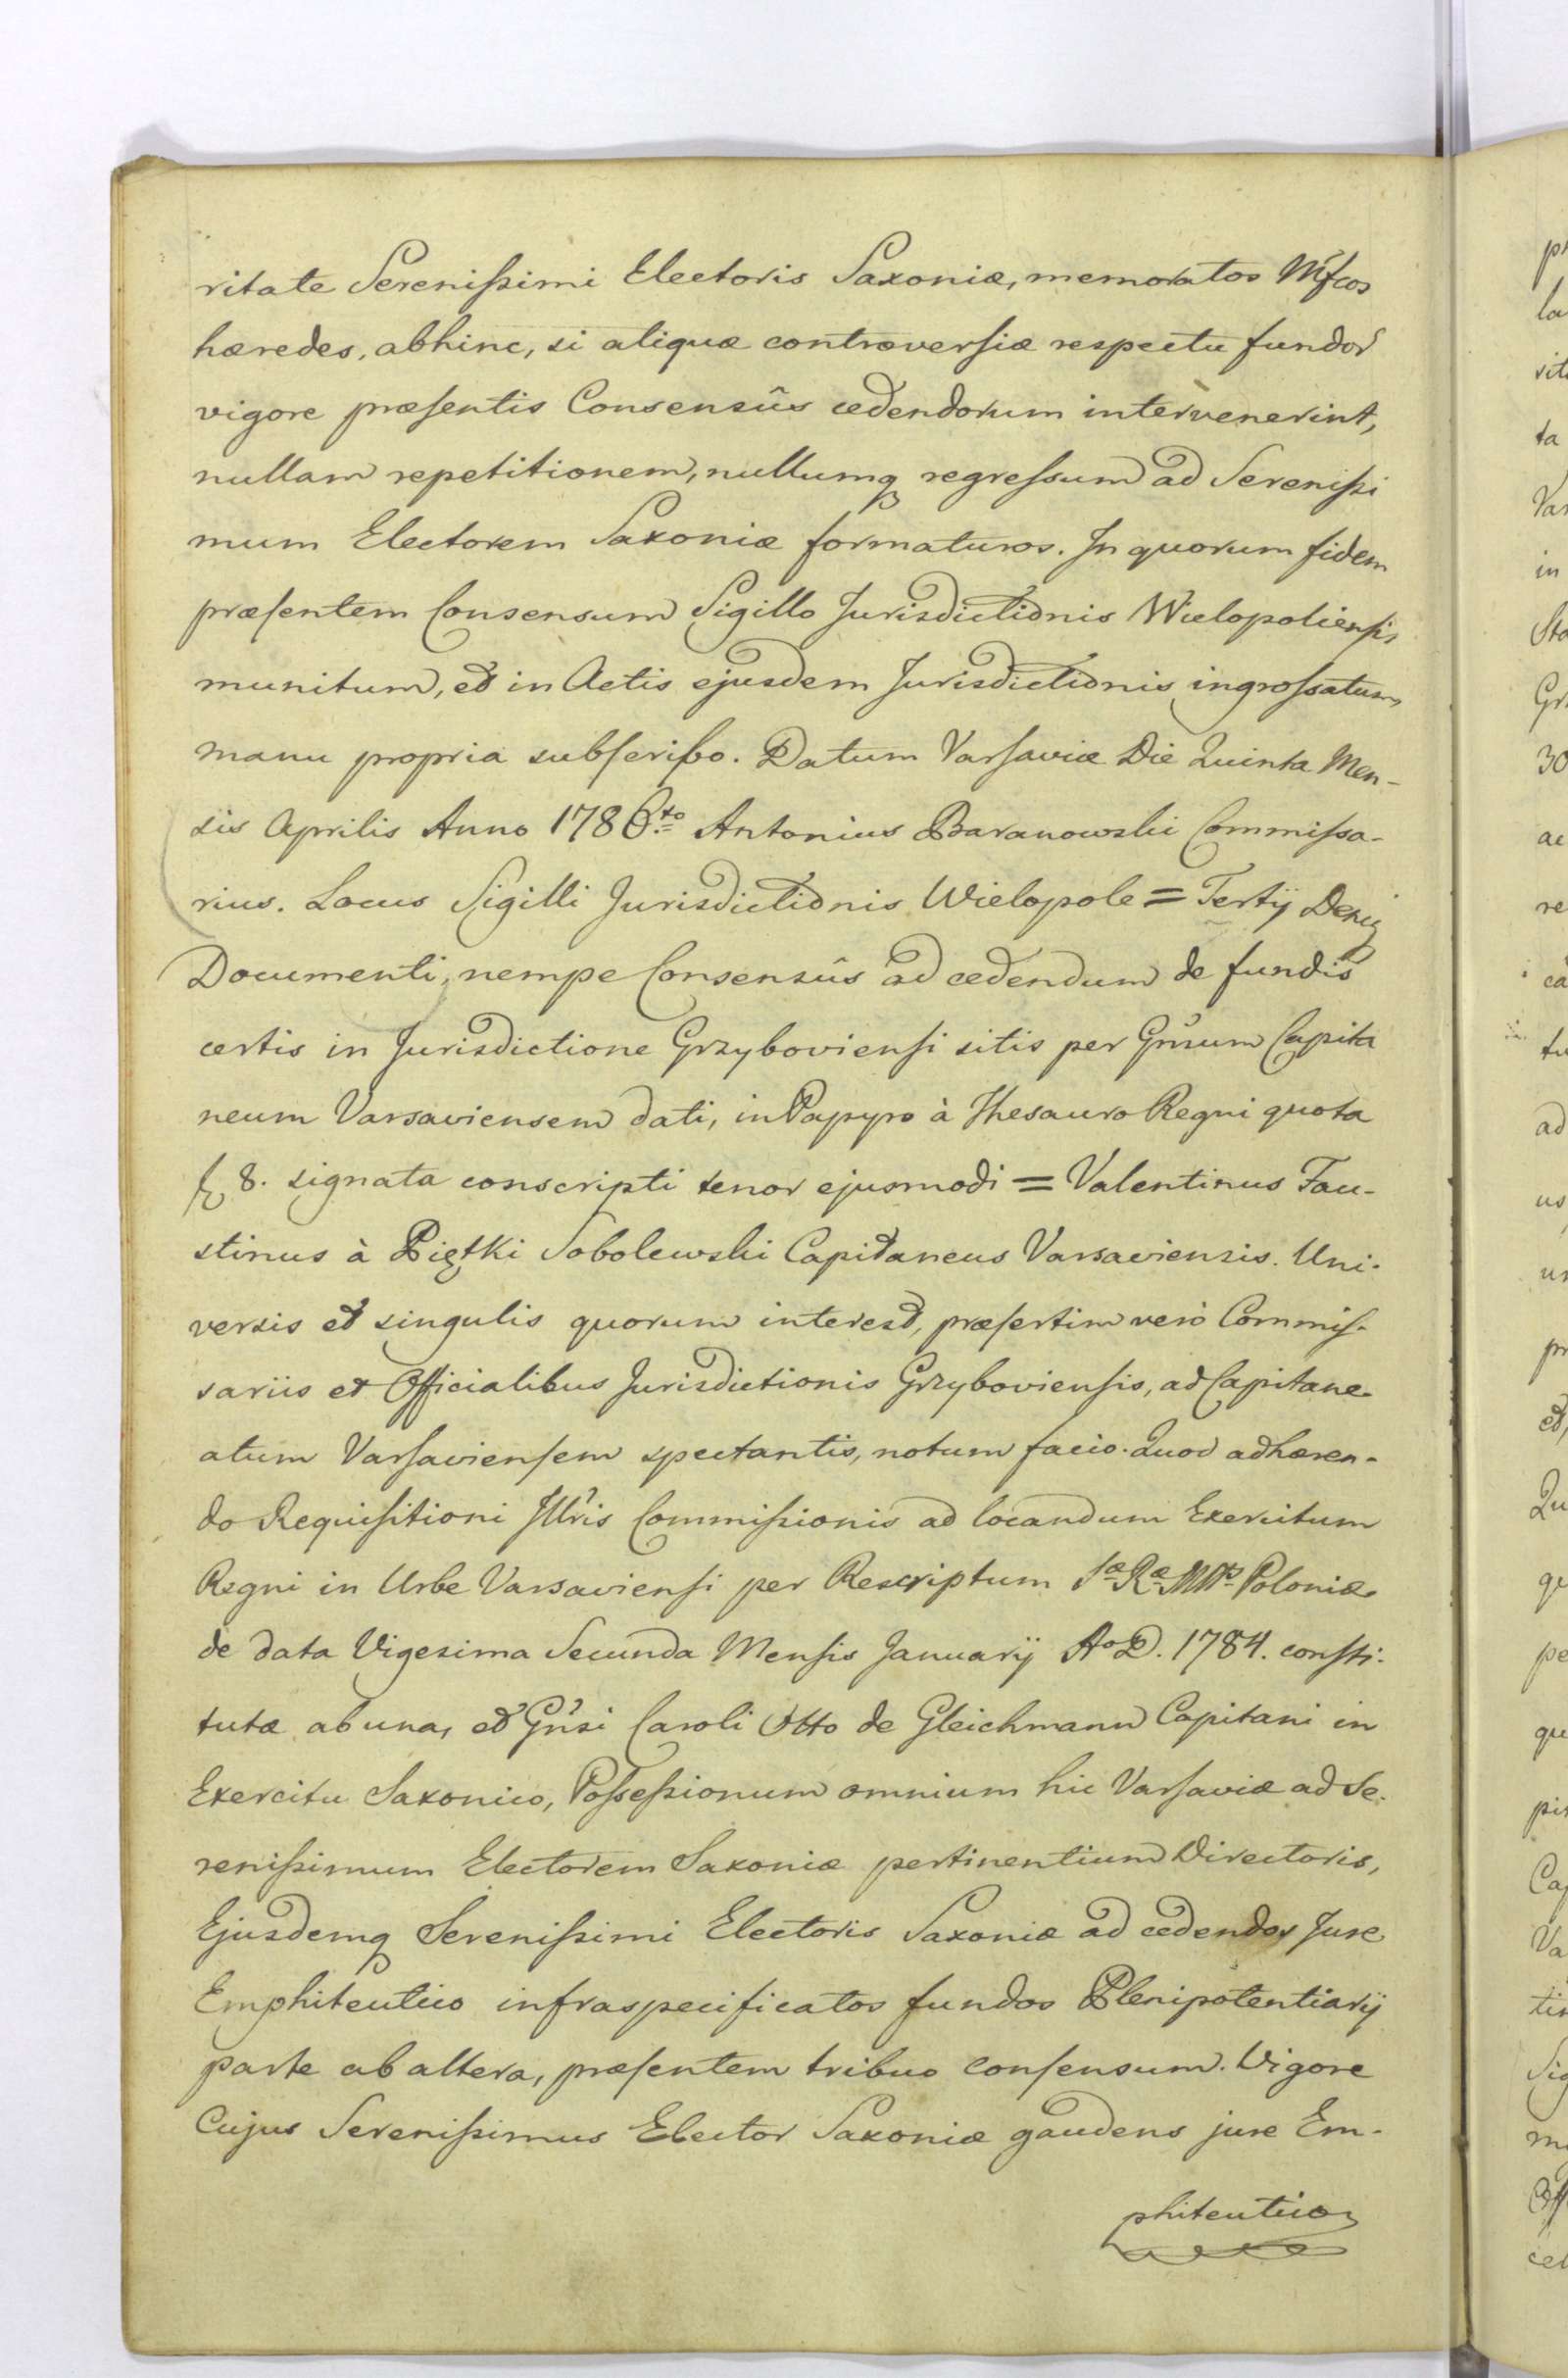 ritate Serenissimi Electoris Saxoniæ, memoratos Mfcos
hæredes, abhinc, si aliquæ controversiæ respectu fundor
vigore præsentis Consensûs cedendorum intervenerint,
nullam repetitionem, nullumq regressum ad Serenissi
mum Electorem Saxoniæ formaturos. In quorum fidem
præsentem Consensum Sigillo Jurisdictionis Wielopoliensis
munitum, et in Actis ejusdem Jurisdictionis ingrossatum,
manu propria subscribo. Datum Varsaviæ Die Quinta Men-
sis Aprilis Anno 1786to Antonius Baranowski Commissa-
rius. Locus Sigilli Jurisdictionis Wielopole = Tertij
Documenti, nempe Consensûs ad cedendum de fundis
certis in Jurisdictione Grzyboviensi sitis per Gnsum Capita
neum Varsaviensem dati, in Papyro à Thesauro Regni quota
f 8. signata conscripti tenor ejusmodi = Valentinus Fau-
stinus à Piętki Sobolewski Capitaneus Varsaviensis. Uni-
versis et singulis quorum interest, præsertim verò Commis-
sariis et Officialibus Jurisdictionis Grzyboviensis, ad Capitane-
atum Varsaviensem spectantis, notum facio. Quod adhæren-
do Requisitioni Illris Commissionis ad locandum Exercitum
Regni in Urbe Varsaviensi per Rescriptum Sæ Ræ Mttis Poloniæ
de data Vigesima Secunda Mensis Januarij Ao D. 1784. consti-
tutæ ab una, et Gnsi Caroli Otto de Gleichmann Capitani in
Exercitu Saxonico, Possessionum omnium hic Varsaviæ ad Se-
renissimum Electorem Saxoniæ pertinentium Directoris,
Ejusdemq Serenissimi Electoris Saxoniæ ad cedendos Jure
Emphiteutico infraspecificatos fundos Plenipotentiarij
parte ab altera, præsentem tribuo consensum. Vigore
Cujus Serenissimus Elector Saxoniæ gaudens jure Em-
phiteutico